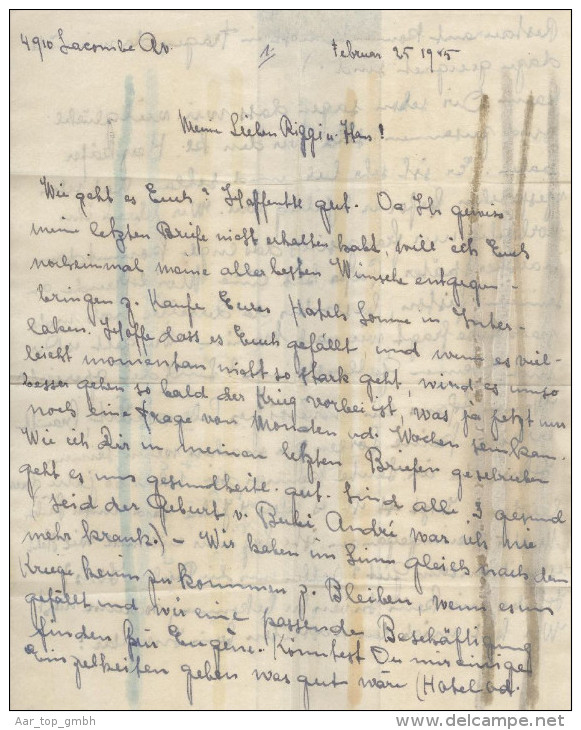 4910 Lacombe Av.
1.
Februar 25 1945
Meine Lieben Riggi u. Hans!
Wie geht es Euch? Hoffentl. gut. Da Ihr gewiss
meine letzten Briefe nicht erhalten habt, will ich Euch
nocheinmal meine allerbesten Wünsche entgegen-
bringen z. Kaufe Eures Hotels Sonne in Inter-
laken. Hoffe dass es Euch gefällt und wenn es viel-
leicht momentan nicht so stark geht, wird es umso
besser gehen so bald der Krieg vorbei ist, was ja jetzt nur
noch eine Frage von Monaten od. Wochen sein kann.
Wie ich Dir in meinen letzten Briefen geschrieben
geht es uns gesundheitl. gut. Sind alle 3 gesund
seid der Geburt v. Bubi André war ich nie
mehr krank.) – Wir haben im Sinn gleich nach dem
Kriege heim zu kommen z. Bleiben, wenn es uns
gefällt und wir eine passende Beschäftigung
finden für Eugène. Könntest Du mir einige
Einzelheiten geben was gut wäre (Hotel od.
Aar_top_gmbh